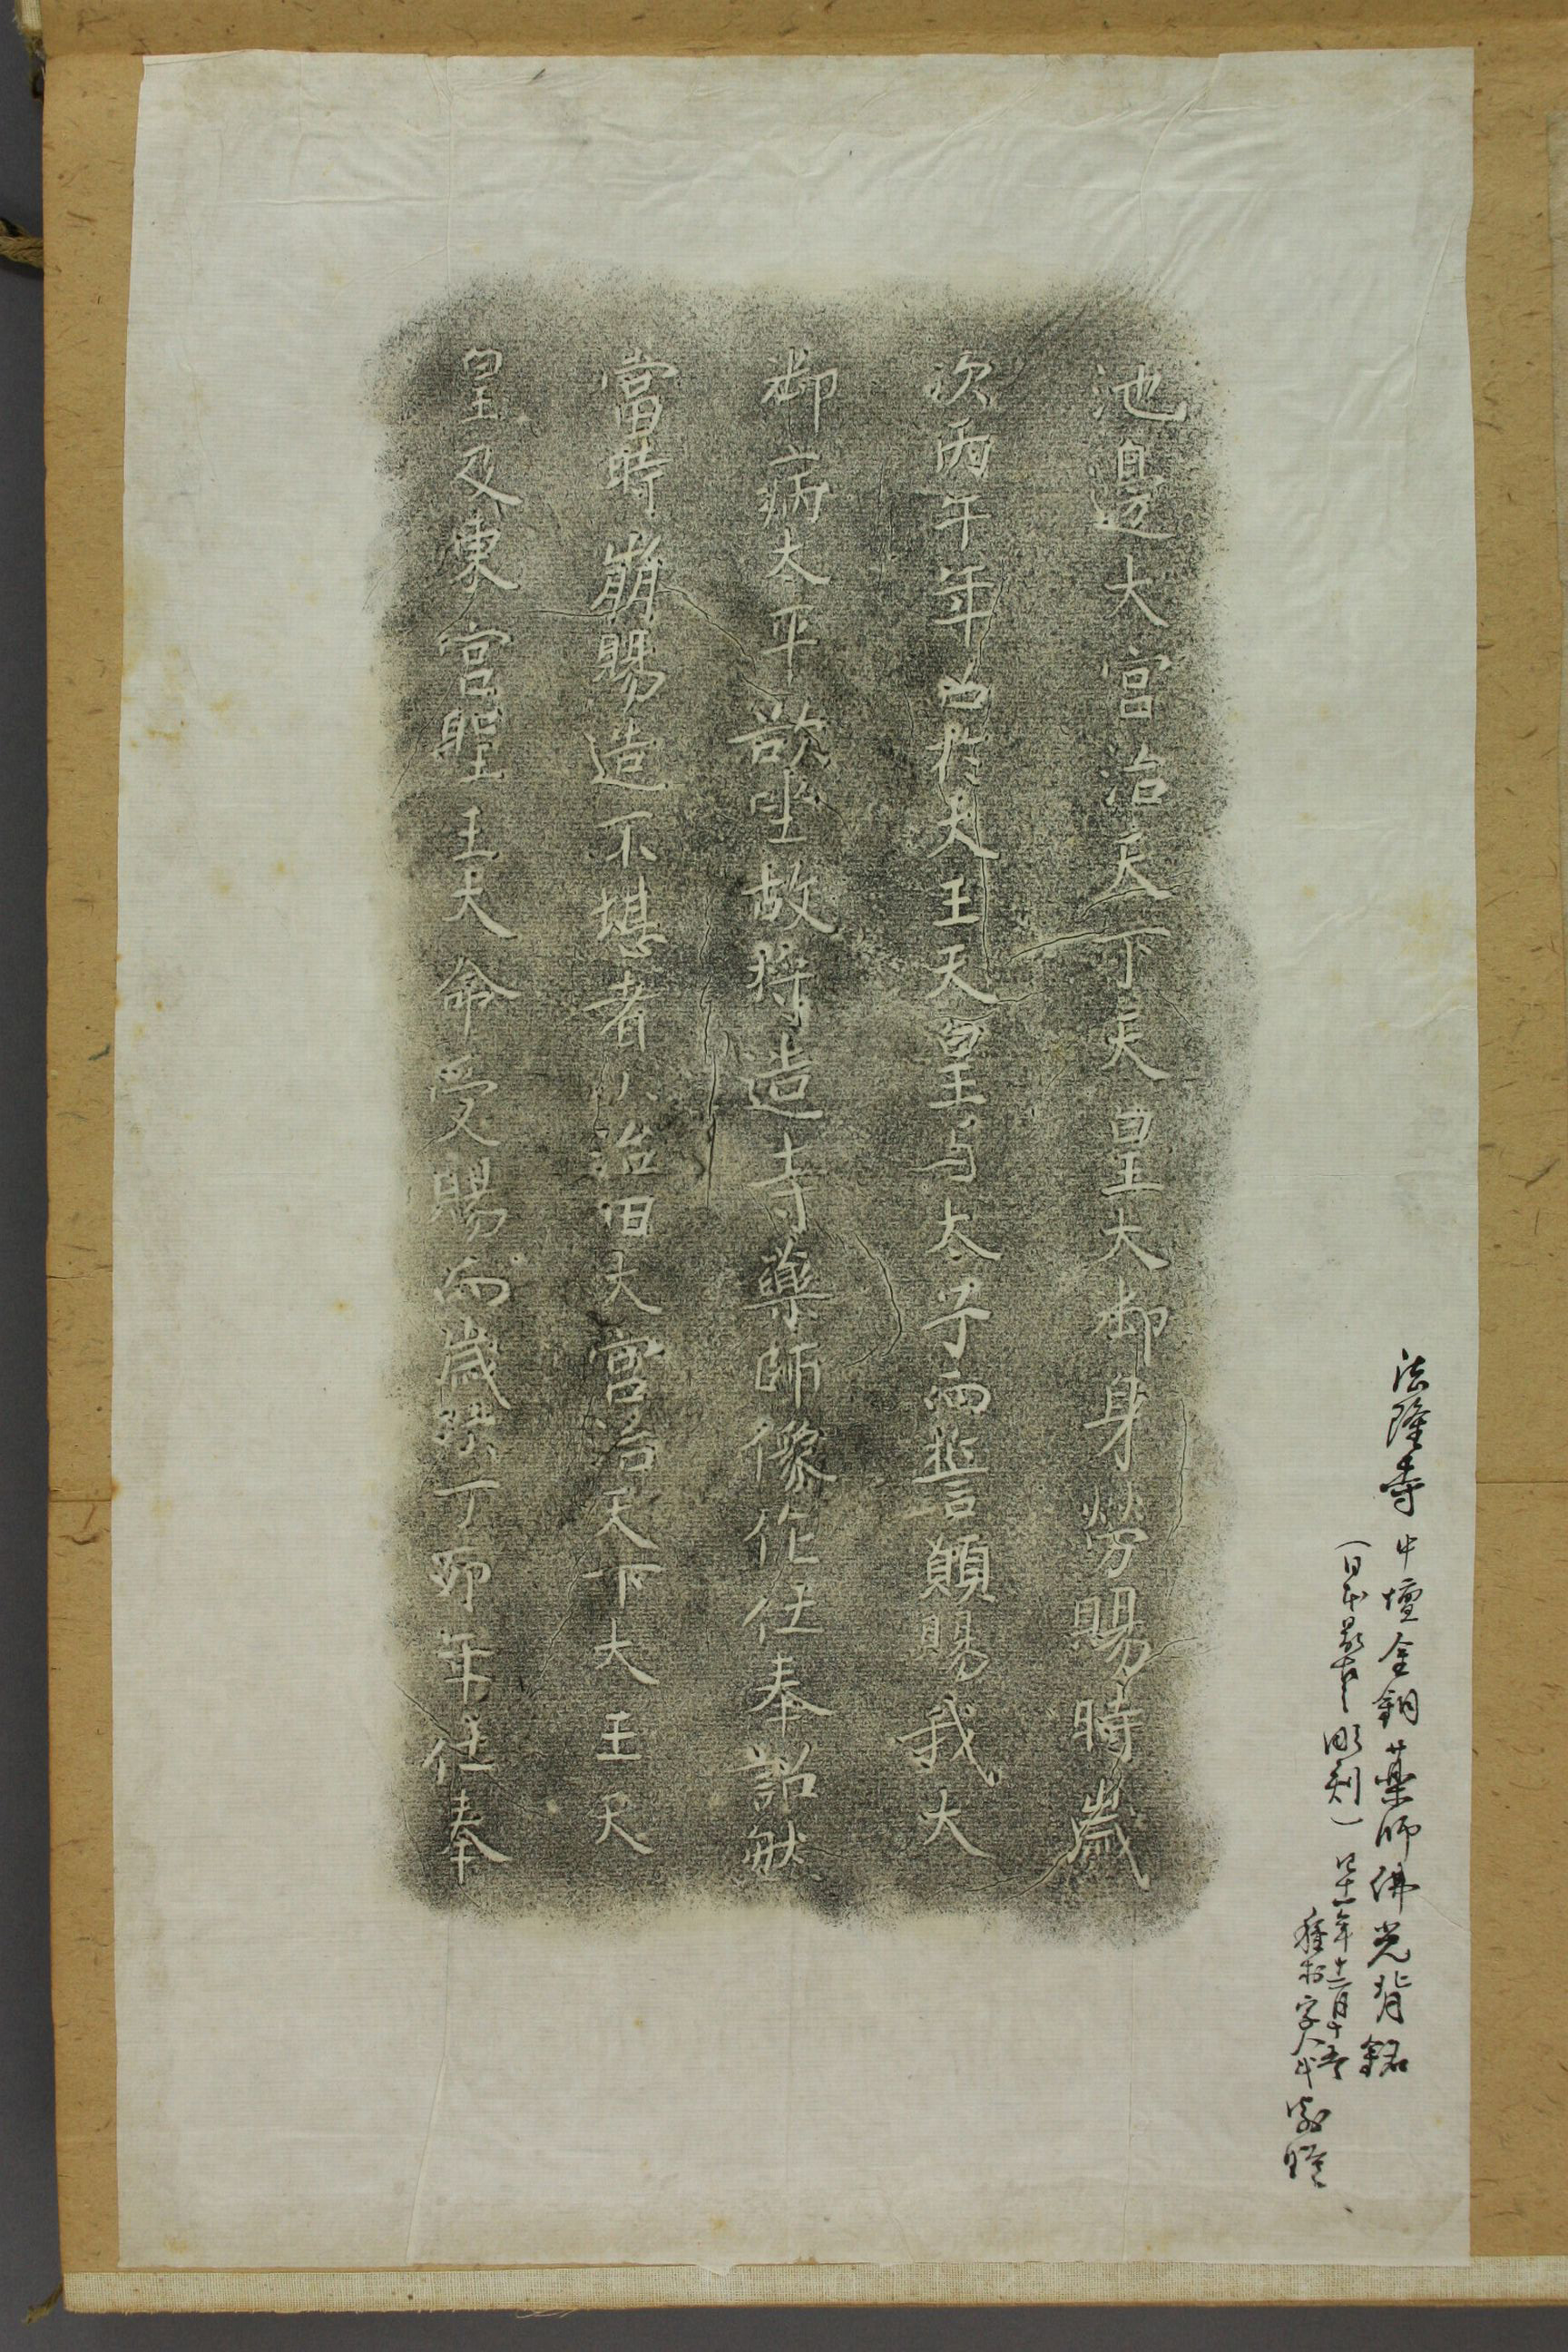 法隆寺中壇金銅薬師佛光背銘
(日本最古之彫刻)
四十一年十二月十五
池邊大宮治天下天皇大御身勞賜時歲
次丙午年召於大王天皇与太子而誓願賜我大
御病太平欲坐故将造寺藥師像作仕奉詔然
當時崩賜造不堪者小治田大宮治天下大王天
皇及東宮聖王大命受賜而歲次丁卯年仕奉